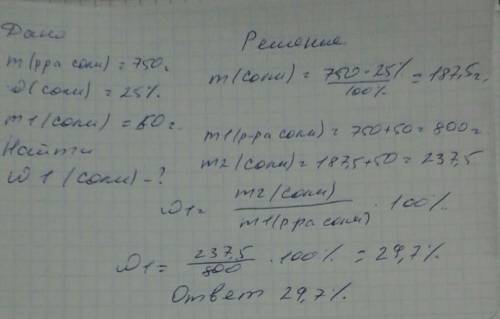 Дано
Решение
m(рра соли) = 750г.
ω(соли) = 25%.
m(соли) = 750 · 25% / 100% = 187,5г.
m1(соли) = 50г.
Найти
ω1(соли) - ?
m1(р-ра соли) = 750+50 = 800г
m2(соли) = 187,5+50 = 237,5
ω1 = m2(соли) / m1(р-ра соли) · 100%
ω1 = 237,5 / 800 · 100% = 29,7%
Ответ 29,7%.